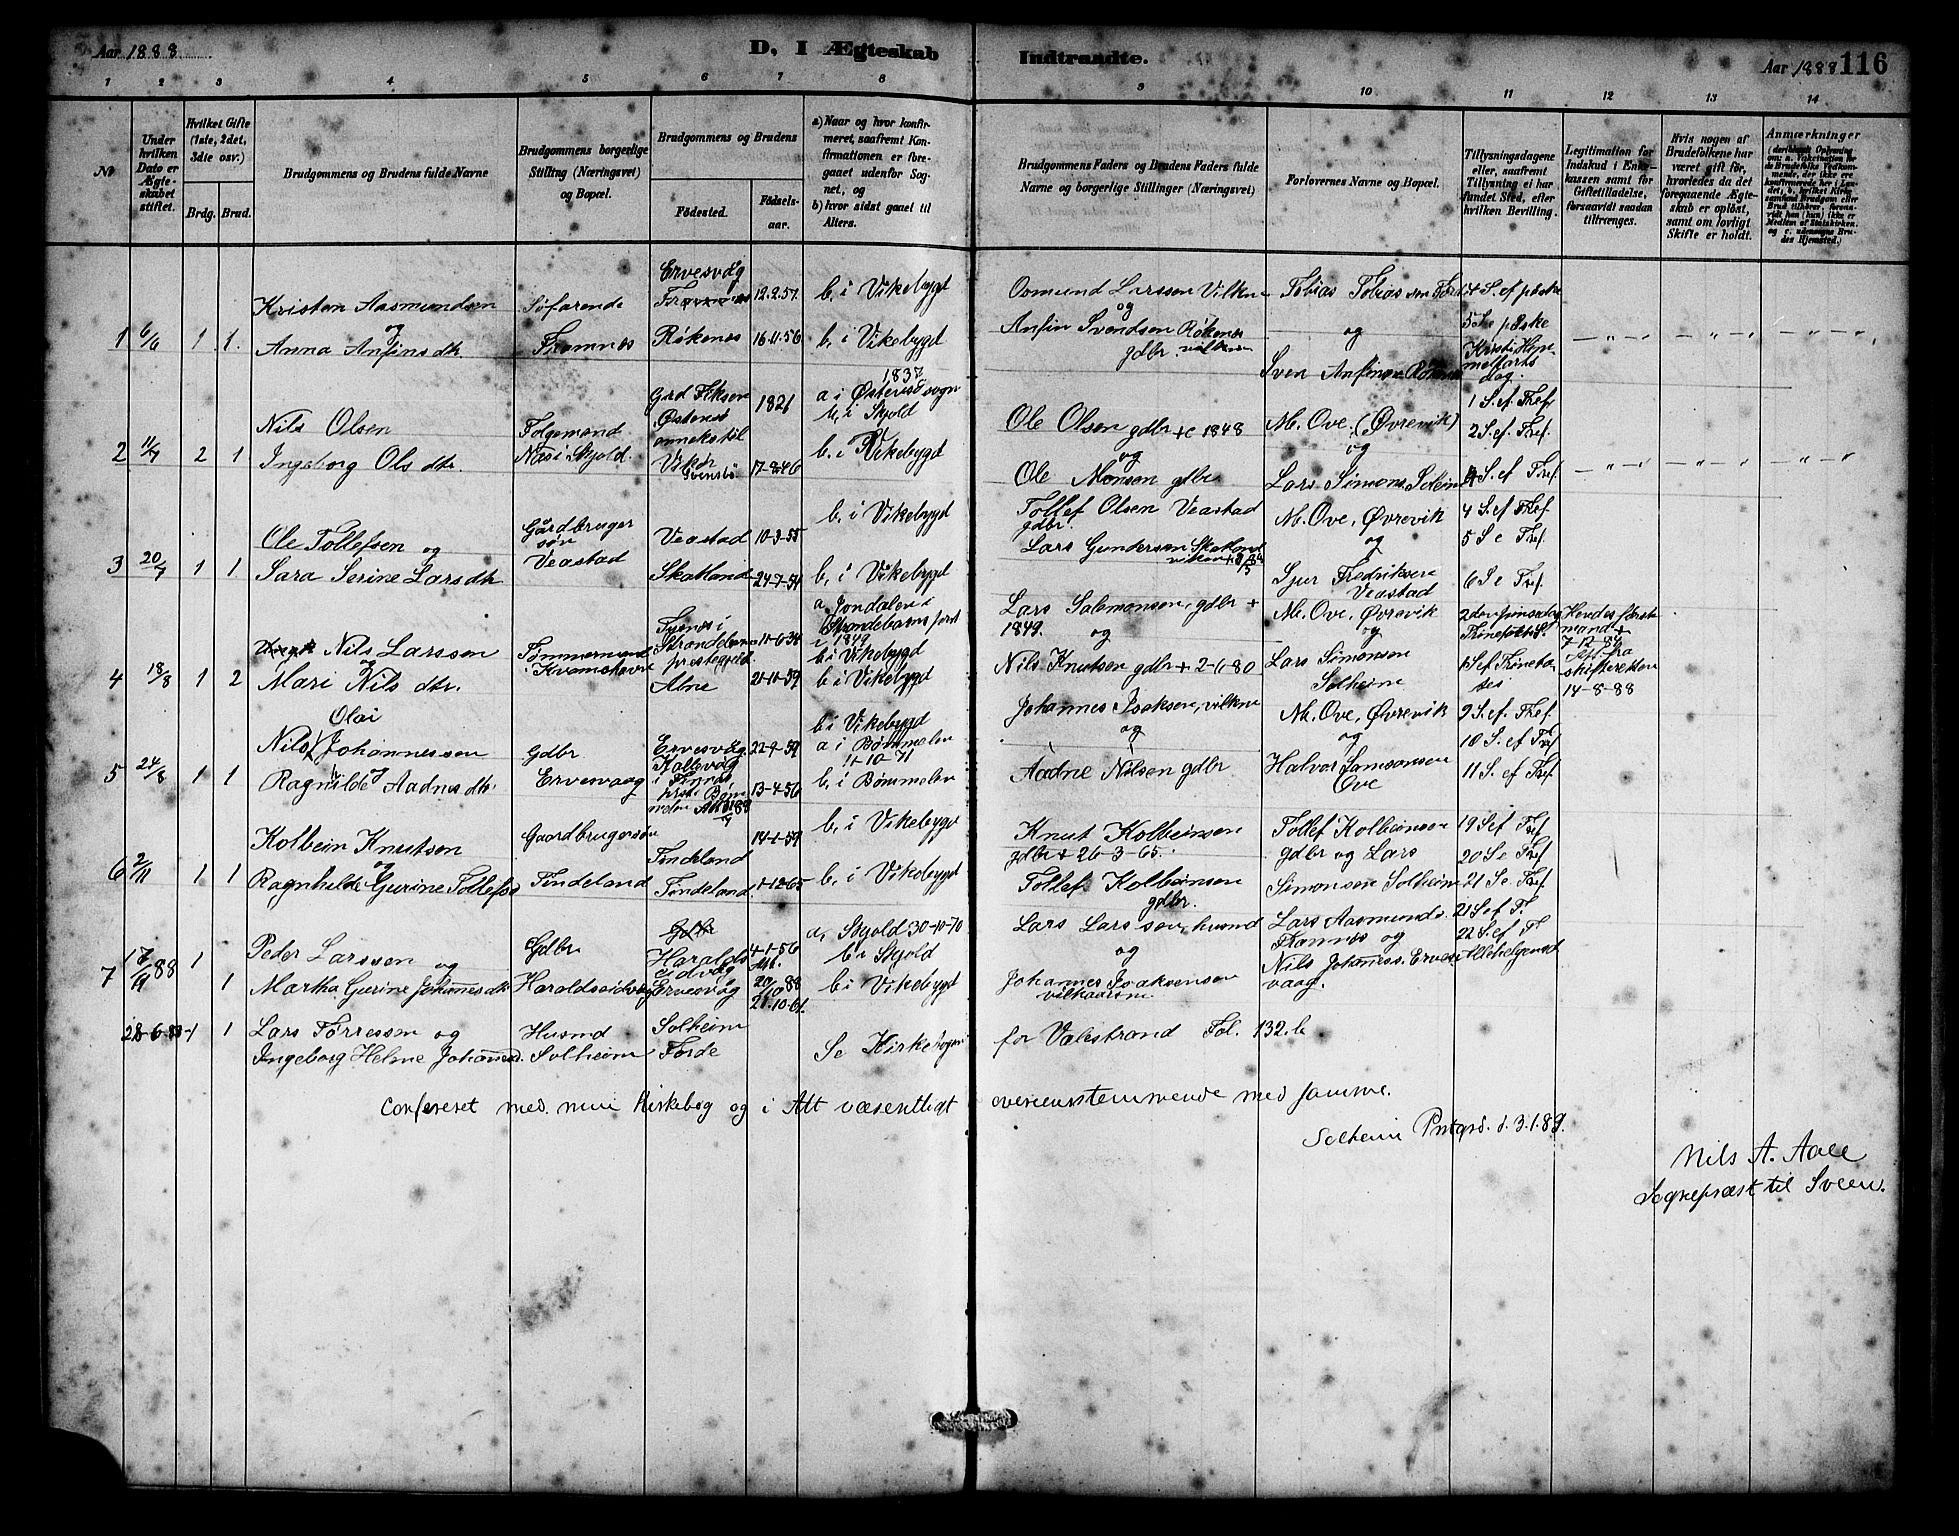 Aar 1888
D, I Ægteskab Indtrandte.
Aar 1888 116
1 2 3 4 5 6 7 8 9 10 11 12 13 14
Nr
Under hvilken Dato er Ægteskabet stiftet.
Hvilket Gifte (1ste, 2det, 3die osv.)
Brdg. Brud.
Brudgommens og Brudens fulde Navne
Brudgommens borgerlige Stilling (Næringsvei) og Bopæl.
Brudgommens og Brudens
Fødested. Fødselsaar.
a) Naar og hvor konfirmeret, saafremt Konfirmationen er foregaaet udenfor Sognet, og
b) hvor sidst gaaet til Alters.
Brudgommens Faders og Brudens Faders fulde Navne og borgerlige Stillinger (Næringsvei)
Forlovernes Navne og Bopæl.
Tillysningsdagene eller, saafremt Tillysning ei har fundet Sted, efter hvilken Bevilling.
Legitimation for Indskud i Enkekassen samt for Giftetilladelse, forsaavidt saadan tiltrænges.
Hvis nogen af Brudefolkene har været gift før, hvorledes da det foregaaende Ægteskab er opløst, samt om lovligt Skifte er holdt.
Anmærkninger
1 6/6 1 1.
Kristen Aasmundsen og
Anna Anfinsdtr.
Søfarende
Framnes
Ervesvåg
12.2.57
Røkenes 16-11-56
b, i Vikebygd
b, i Vikebygd
Osmund Larssen Vilkm
og
Anfin Svendsen Røkenes
gdbr.
Tobias Tobiassen
og
Sven Anfinsen Røkenes
4 S. ef paske
5 S. e paske
Kristi Himmelfarts dag.
2 11/7 2 1
Nils Olsen
Ingeborg Olsdtr.
Folgemand
Næs i Skjold.
1821
Vikør
17-8-46
1837
b, i Skjold
b, i Vikebygd
Ole Olsen gdbr + c 1848
og
Ole Monsen gdbr
M. Ove, (Øvrevik)
og
Lars Simons. Solheim
1 S. ef. Tref
2 S. ef. Tref.
S. ef Tref.
3 20/7 1 1
Ole Tollefsen og
Sara Serine Larsdtr
Gårdbruger søn
Veastad
Veastad 10-3-55
Skatland 24-7-54
b, i Vikebygd
b, i Vikebygd
Tollef Olsen Veastad
gdbr.
Lars Gundersen Skatland
M. Ove, Øvrevik
og
Sjur Fredriksen
Veastad
4 S. ef Tref
5 S e Tref.
6 S. e Tref.
4 18/8 1 2
Nils Larssen
og
Mari Nilsdtr.
Tømmermand
i Kvamshavn
Fysnes i
Strandebarm
prestegjeld 11-6-34
Alne 21-11-59
a, Jondalen i
Strandebarms prst
i 1849
b i Vikebygd
b i Vikebygd
Lars Salomonsen, gdbr +
1849. og
Nils Knutsen gdbr + 2-6-80
M. Ove, Øvrevik
og
Lars Simonsen
Solheim
2den pinsedag
1 S ef Trinitatis
Hendes første
mand +
7-12-84
Att. fra
skifteretten
14-8-88
5 24/8 1 1
Olai
Nils Johannessen
Ragnilde Aadnesdtr.
Gdbr
Ervesvaag
Ervesvåg 22-9-59
Kallevåg
i Finnås
13-4-56
b i Vikebygd
a i Bømmelen
1-10-71
b, i Bømmelen
Johannes Isaksen, vilkm
og
Aadne Nilsen gdbr
M. Ove, Øvrevik
og
Halvor Samsonsen
Ove
9 S. ef. Tref.
10 S. ef Tref
11 S. ef Tref.
6 2/11 1 1
Kolbein Knutsen
og
Ragnhilde Gurine Tollefsd
Gaardbrugersøn
Tindeland
Tindeland 14-1-59
Tindeland 1-12-65
b, i Vikebygd
b, i Vikebygd
Knut Kolbeinsen
gdbr + 26-3-65.
Tollef Kolbeinsen
gdbr.
Tollef Kolbeinsen
gdbr og Lars
Simonsen Solheim
19 S ef Tref
20 S e Tref
21 S e Tref.
7 88 1 1
Peder Larssen og
Martha Gurine Johannesdtr
Gdbr
Haraldseidvåg
Haralds
eidvåg 4-1-56
Ervesvåg
20/10 88
21.10-61.
a, Skjold 30-10-70
b i Skjold
b i Vikebygd
Lars Larssen, husmd
og
Johannes Isaksen
vilkaarsm.
Lars Aasmunds.
Framnes og
Nils Johanness. Erves
vaag.
21 S ef T.
22 S. ef T
Allehelgensd
28-6-88 1 1
Lars Tørressen og
Ingeborg Helene Johannesd.
Husmd
Solheim
Solheim
Førde
Se Kirkebogen for Valestrand Fol. 132.b
Confereret med min Kirkebog og i Alt væsentligt overensstemmende med samme.
Solheim Prstgrd. d. 3.1.89.
Nils A. Aale
Sogneprest til Sveen.